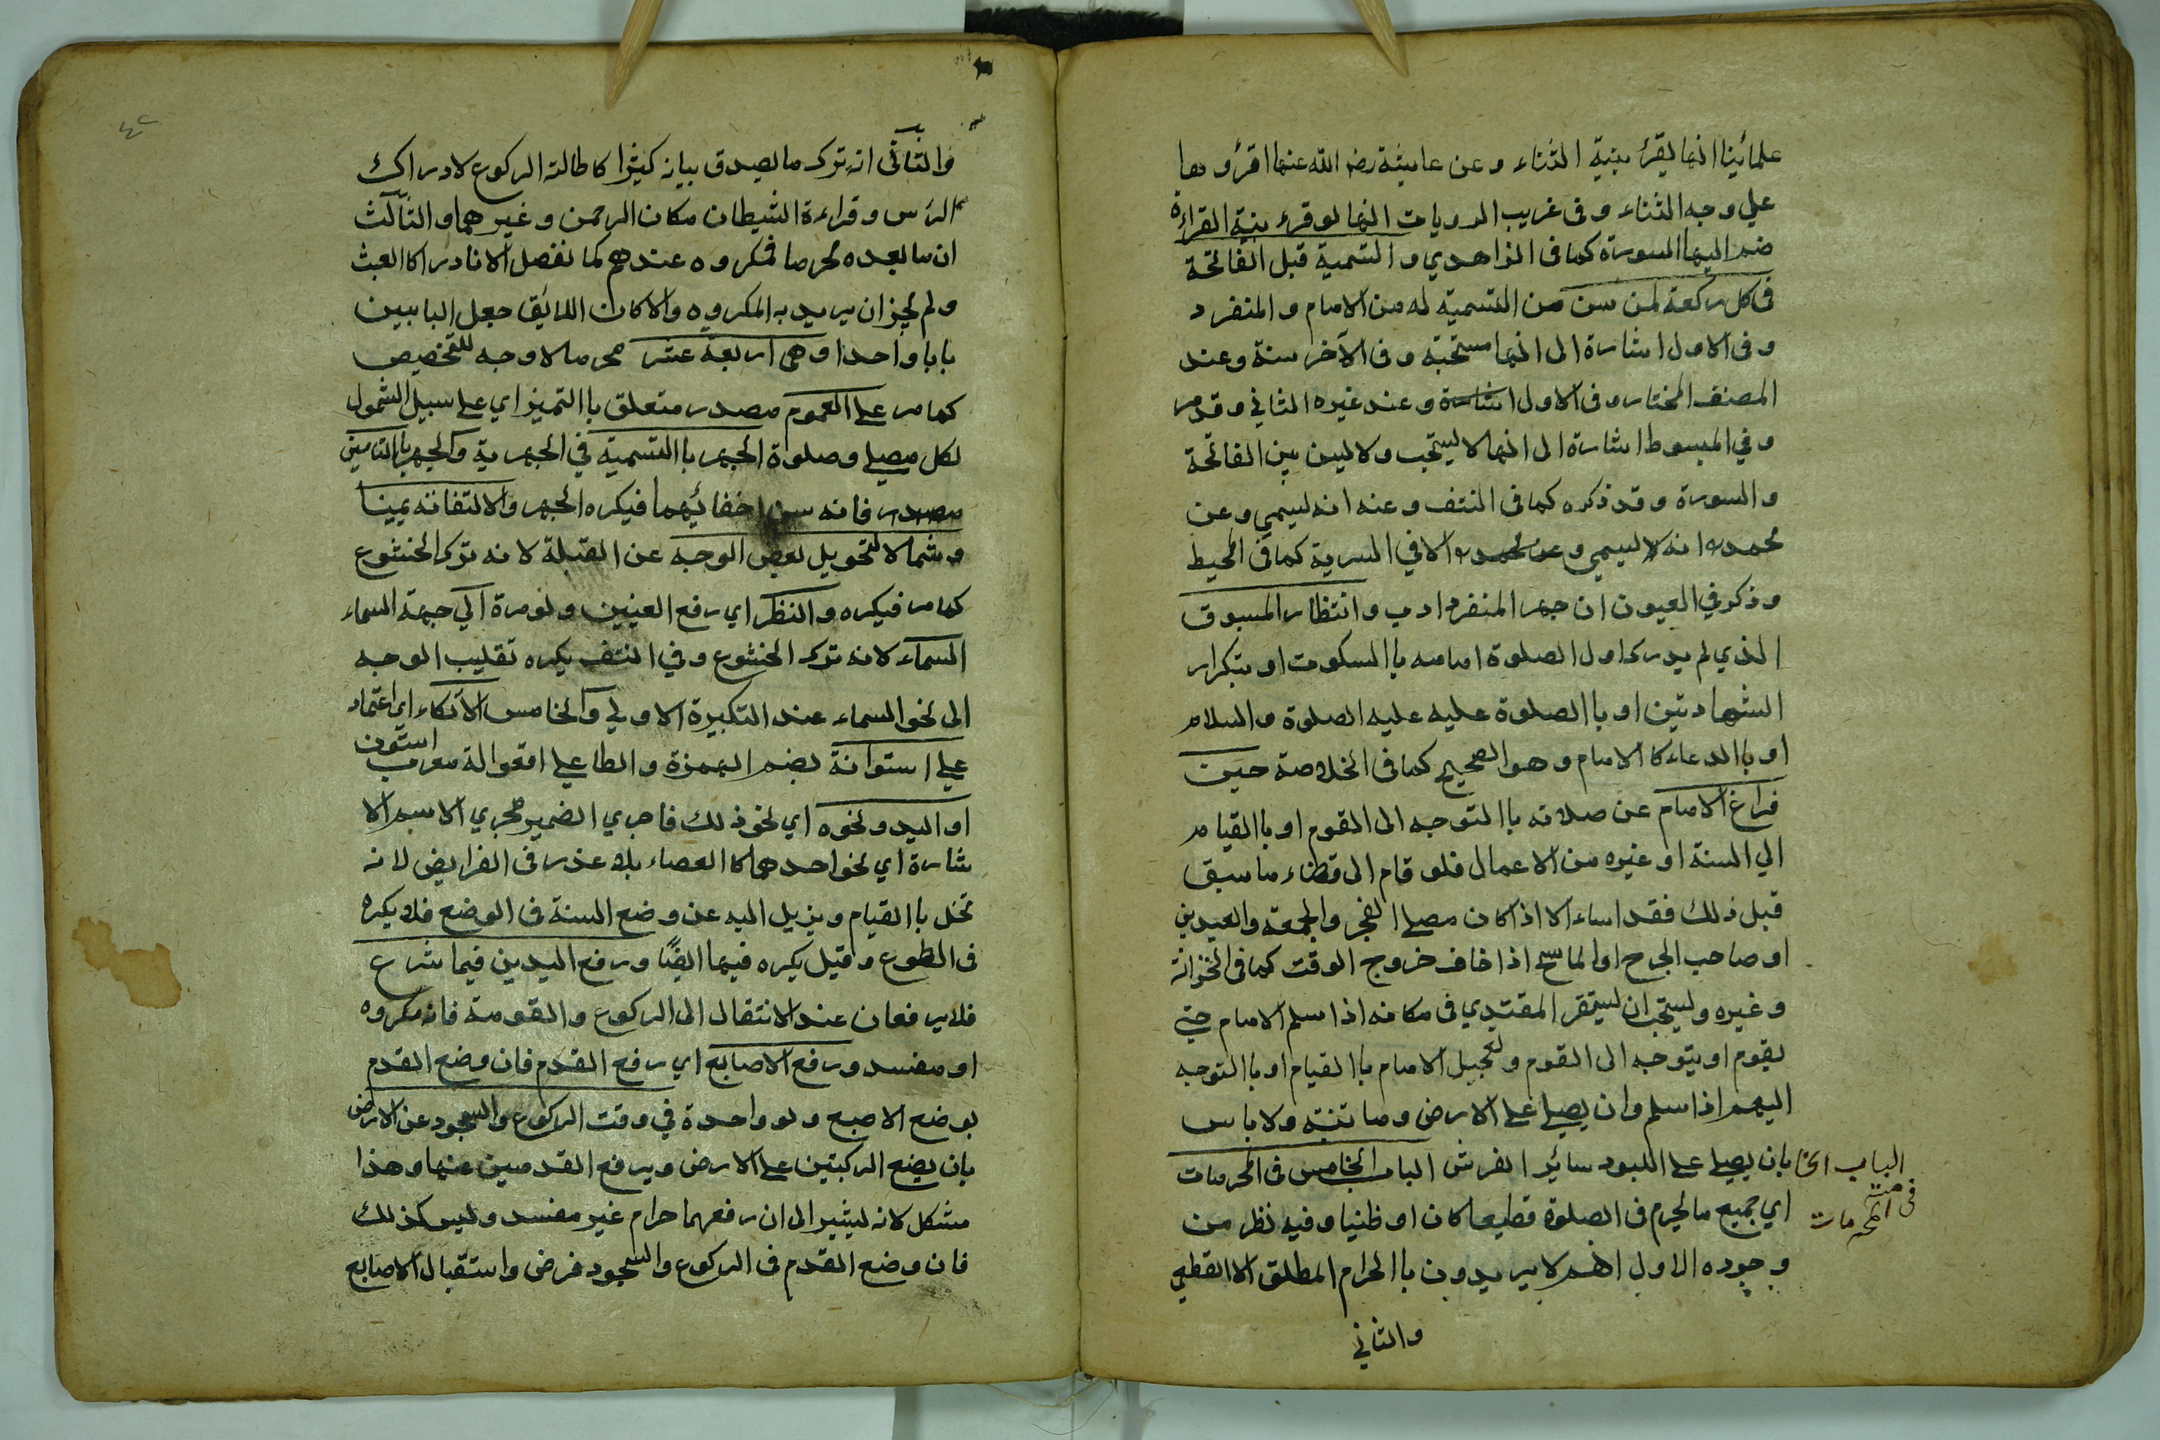 علمائينا انها يقرئ بنية الثناء وعن عايشة رضى الله عنها اقرؤوها
علي وجه الثناء وفى غريب الروايات انها لو قرء بنية القراءة
ضم اليها السورة كما فى الزاهدي والتسمية قبل الفاتحة
فى كل ركعة لمن سن من التسمية له من الامام والمنفرد
وفى الاول اشارة الى انها مستحبة وفى الآخر سنة وعند
المصنف المختار وفى الاول اشارة وعند غيره الثاني وقد مر
وفي المبسوط اشارة الى انها لا يستحب ولا يسن بين الفاتحة
والسورة وقد ذكره كما فى النتف وعنه انه يسمي وعن
محمد انه لا يسمي الا في السرية كما فى المحيط
وذكر في العيون ان جهر المنفرد ادب وانتظار المسبوق
الذي لم يدرك اول الصلوة امامه باالسكوت او بتكرار
الشهادتين او باالصلوة عليه عليه الصلوة والسلام
او باالدعاء كاالامام وهو الصحيح كما فى الخلاصة حين
فراغ الامام عن صلاته باالتوجه الى القوم او باالقيام
الي السنة او غيره من الاعمال فلو قام الى قضاء ما سبق
قبل ذلك فقد اساء الا اذا كان مصلى الفجر والجمعة والعيدين
او صاحب الجرح او الماسح اذا خاف خروج الوقت كما فى الخزانة
وغيره ويستحب ان يستقر المقتدي فى مكانه اذا سلم الامام حتي
يقوم او يتوجه الى القوم ولتعجيل الامام باالقيام او باالتوجه
اليهم اذا سلم وان يصلي علي الارض وما تنبته ولا باس
بان يصلي علي اللبود سائر الفرش الباب الخامس فى المحرمات
الباب الخا
مس
فى المحرمات
اي جميع ما يحرم فى الصلوة قطيعا كان او ظنيا وفيه نظر من
وجوده الاول انهم لا يريدون باالحرام المطلق الا القطعي
والثاني
٤٢
والثانى انه ترك ما يصدق بيانه كثيرا كاطالة الركوع لادراك
الرس وقراءة الشيطان مكان الرحمن وغيرهما والثالث
ان ما بعده محرما فمكروه عندهم كما نفصل الا نادرا كاالعبث
ولم يجز ان يريد به المكروه والا كان اللائق جعل البابين
بابا واحدا وهى اربعة عشر محرما لا وجه للتخصيص
كما مر على العموم مصدر متعلق باالتميز اي علي سبيل الشمول
لكل مصلي وصلوة الجهر باالتسمية في الجهرية والجهر باالتامين
مصدر فانه سن اخفائهما فيكره الجهر والالتفاته يمينا
وشمالا لتحويل بعض الوجه عن القبلة لانه ترك الخشوع
كما مر فيكره والنظر اي رفع العينين ولو مرة الي جهة السماء
السماء لانه ترك الخشوع وفي النتف يكره تقليب الوجه
الى نحو السماء عند التكبيرة الاولي والخامس الاتكاء اي اعتماد
علي استوانة بضم الهمزة والطا علي افعوالة معرب استون
او اليد ونحوه اي نحو ذلك فاجري الضمير مجري الاسم الا
شارة اي نحو احدهما كا العصاء بلا عذر فى الفرايض لانه
تخل باالقيام ويزيل اليه عن وضع السنة فى الوضع فلا يكره
فى التطوع وقيل يكره فيها ايضًا ورفع اليدين فيما شرع
فلا يرفعان عند الانتقال الى الركوع والقومة فانه مكروه
او مفسد ورفع الاصابع اي رفع القدم فان وضع القدم
بوضع الاصبع ولو واحدة في وقت الركوع والسجود عن الارض
بان يضع الركبتين على الارض ويرفع القدمين عنها وهذا
مشكل لانه ليشير الى ان رفعهما حرام غير مفسد وليس كذلك
فان وضع القدم فى الركوع والسجود فرض واستقبال الاصابع